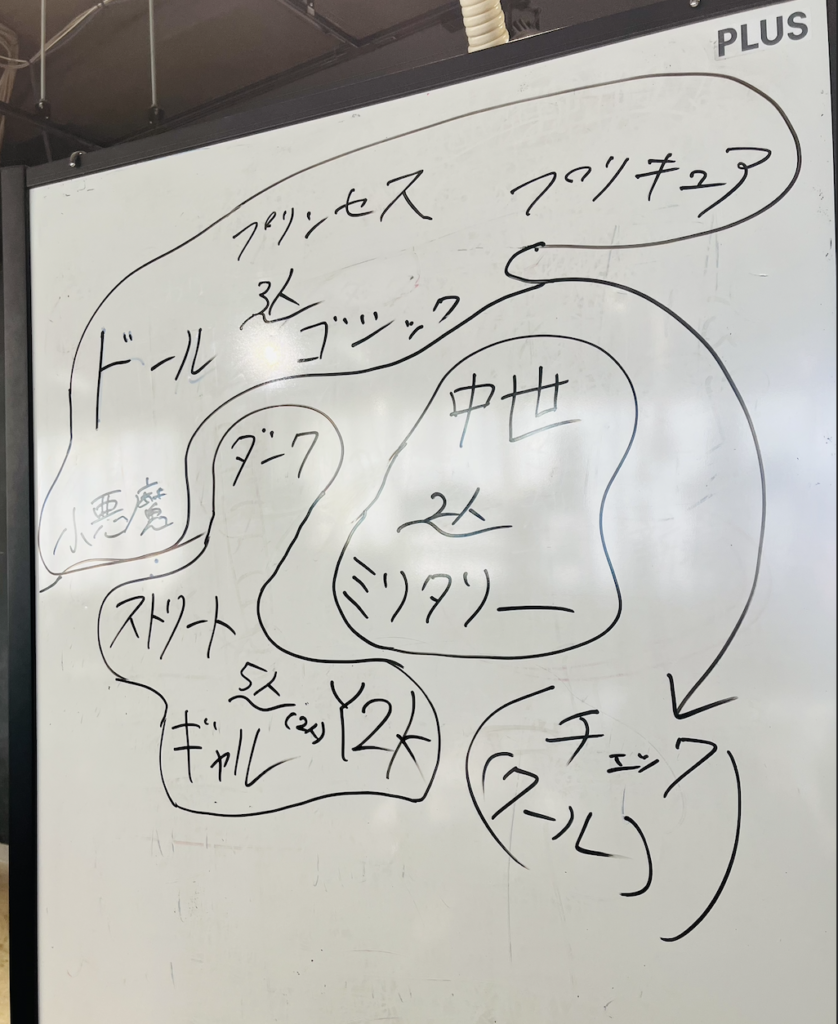 PLUS
プリンセス プリキュア
3人
ドール ゴシック
ダーク
中世
小悪魔
2人
ストリート
ミリタリー
5人
(2人)
ギャル Y2K
チェック
(クール)